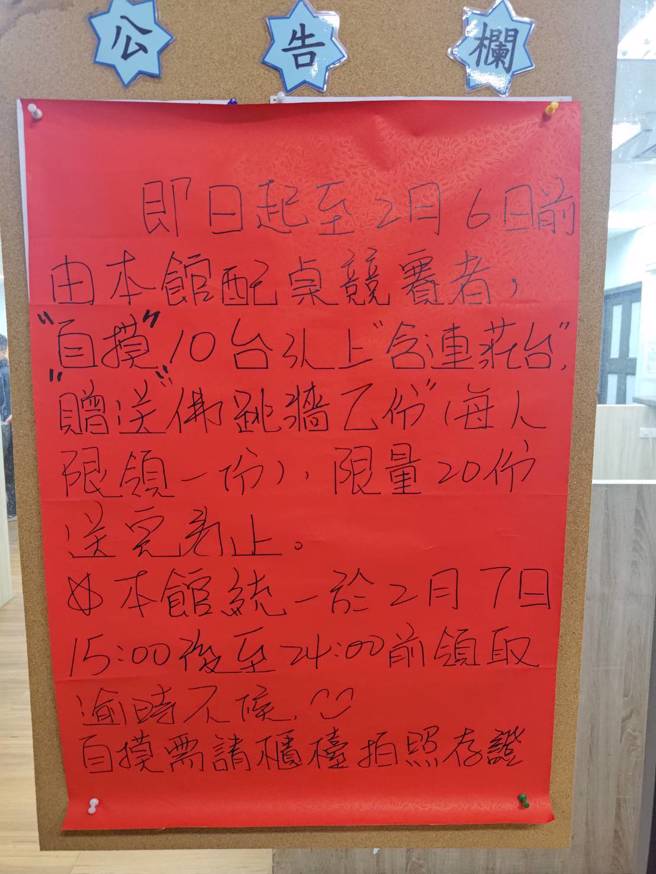 公告欄
即日起至2月6日前
由本館配桌競賽者，
"自摸"10台以上"含連莊台"，
"贈送"佛跳牆乙份"(每人
限領一份)，限量20份
送完為止。
※本館統一於2月7日
15:00後至24:00前領取
逾時不候.
自摸需請櫃檯拍照存證